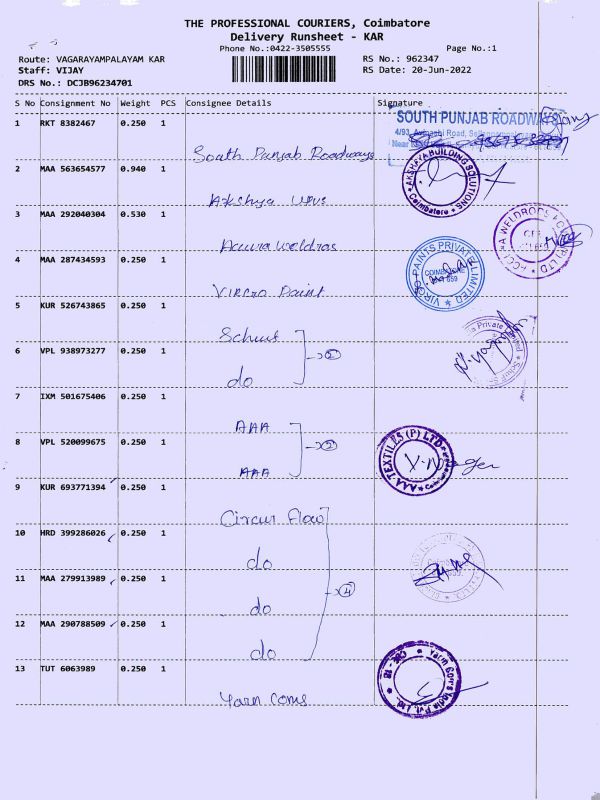 THE PROFESSIONAL COURIERS, Coimbatore
Delivery Runsheet - KAR
Phone No.:0422-3505555
Page No.:1
Route: VAGARAYAMPALAYAM KAR
RS No.: 962347
Staff: VIJAY
RS Date: 20-Jun-2022
DRS No.: DCJB96234701
S No Consignment No Weight PCS Consignee Details Signature
1 RKT 8382467 0.250 1
SOUTH PUNJAB ROADWAYS
4/93, Avinashi Road,
South Punjab Roadways
2 MAA 563654577 0.940 1
AKSHAYA BUILDING SOLUTIONS
Coimbatore
Akshya
3 MAA 292040304 0.530 1
Accura Weldros
4 MAA 287434593 0.250 1
VIRGO PAINTS PRIVATE LIMITED
VIRGO Paint
5 KUR 526743865 0.250 1
6 VPL 938973277 0.250 1
do
7 IXM 501675406 0.250 1
AAA
8 VPL 520099675 0.250 1
AAA TEXTILES (P) LTD
AAA
9 KUR 693771394 0.250 1
Circur flow
10 HRD 399286026 0.250 1
do
11 MAA 279913989 0.250 1
4
do
12 MAA 290788509 0.250 1
do
13 TUT 6063989 0.250 1
Yarn Coms